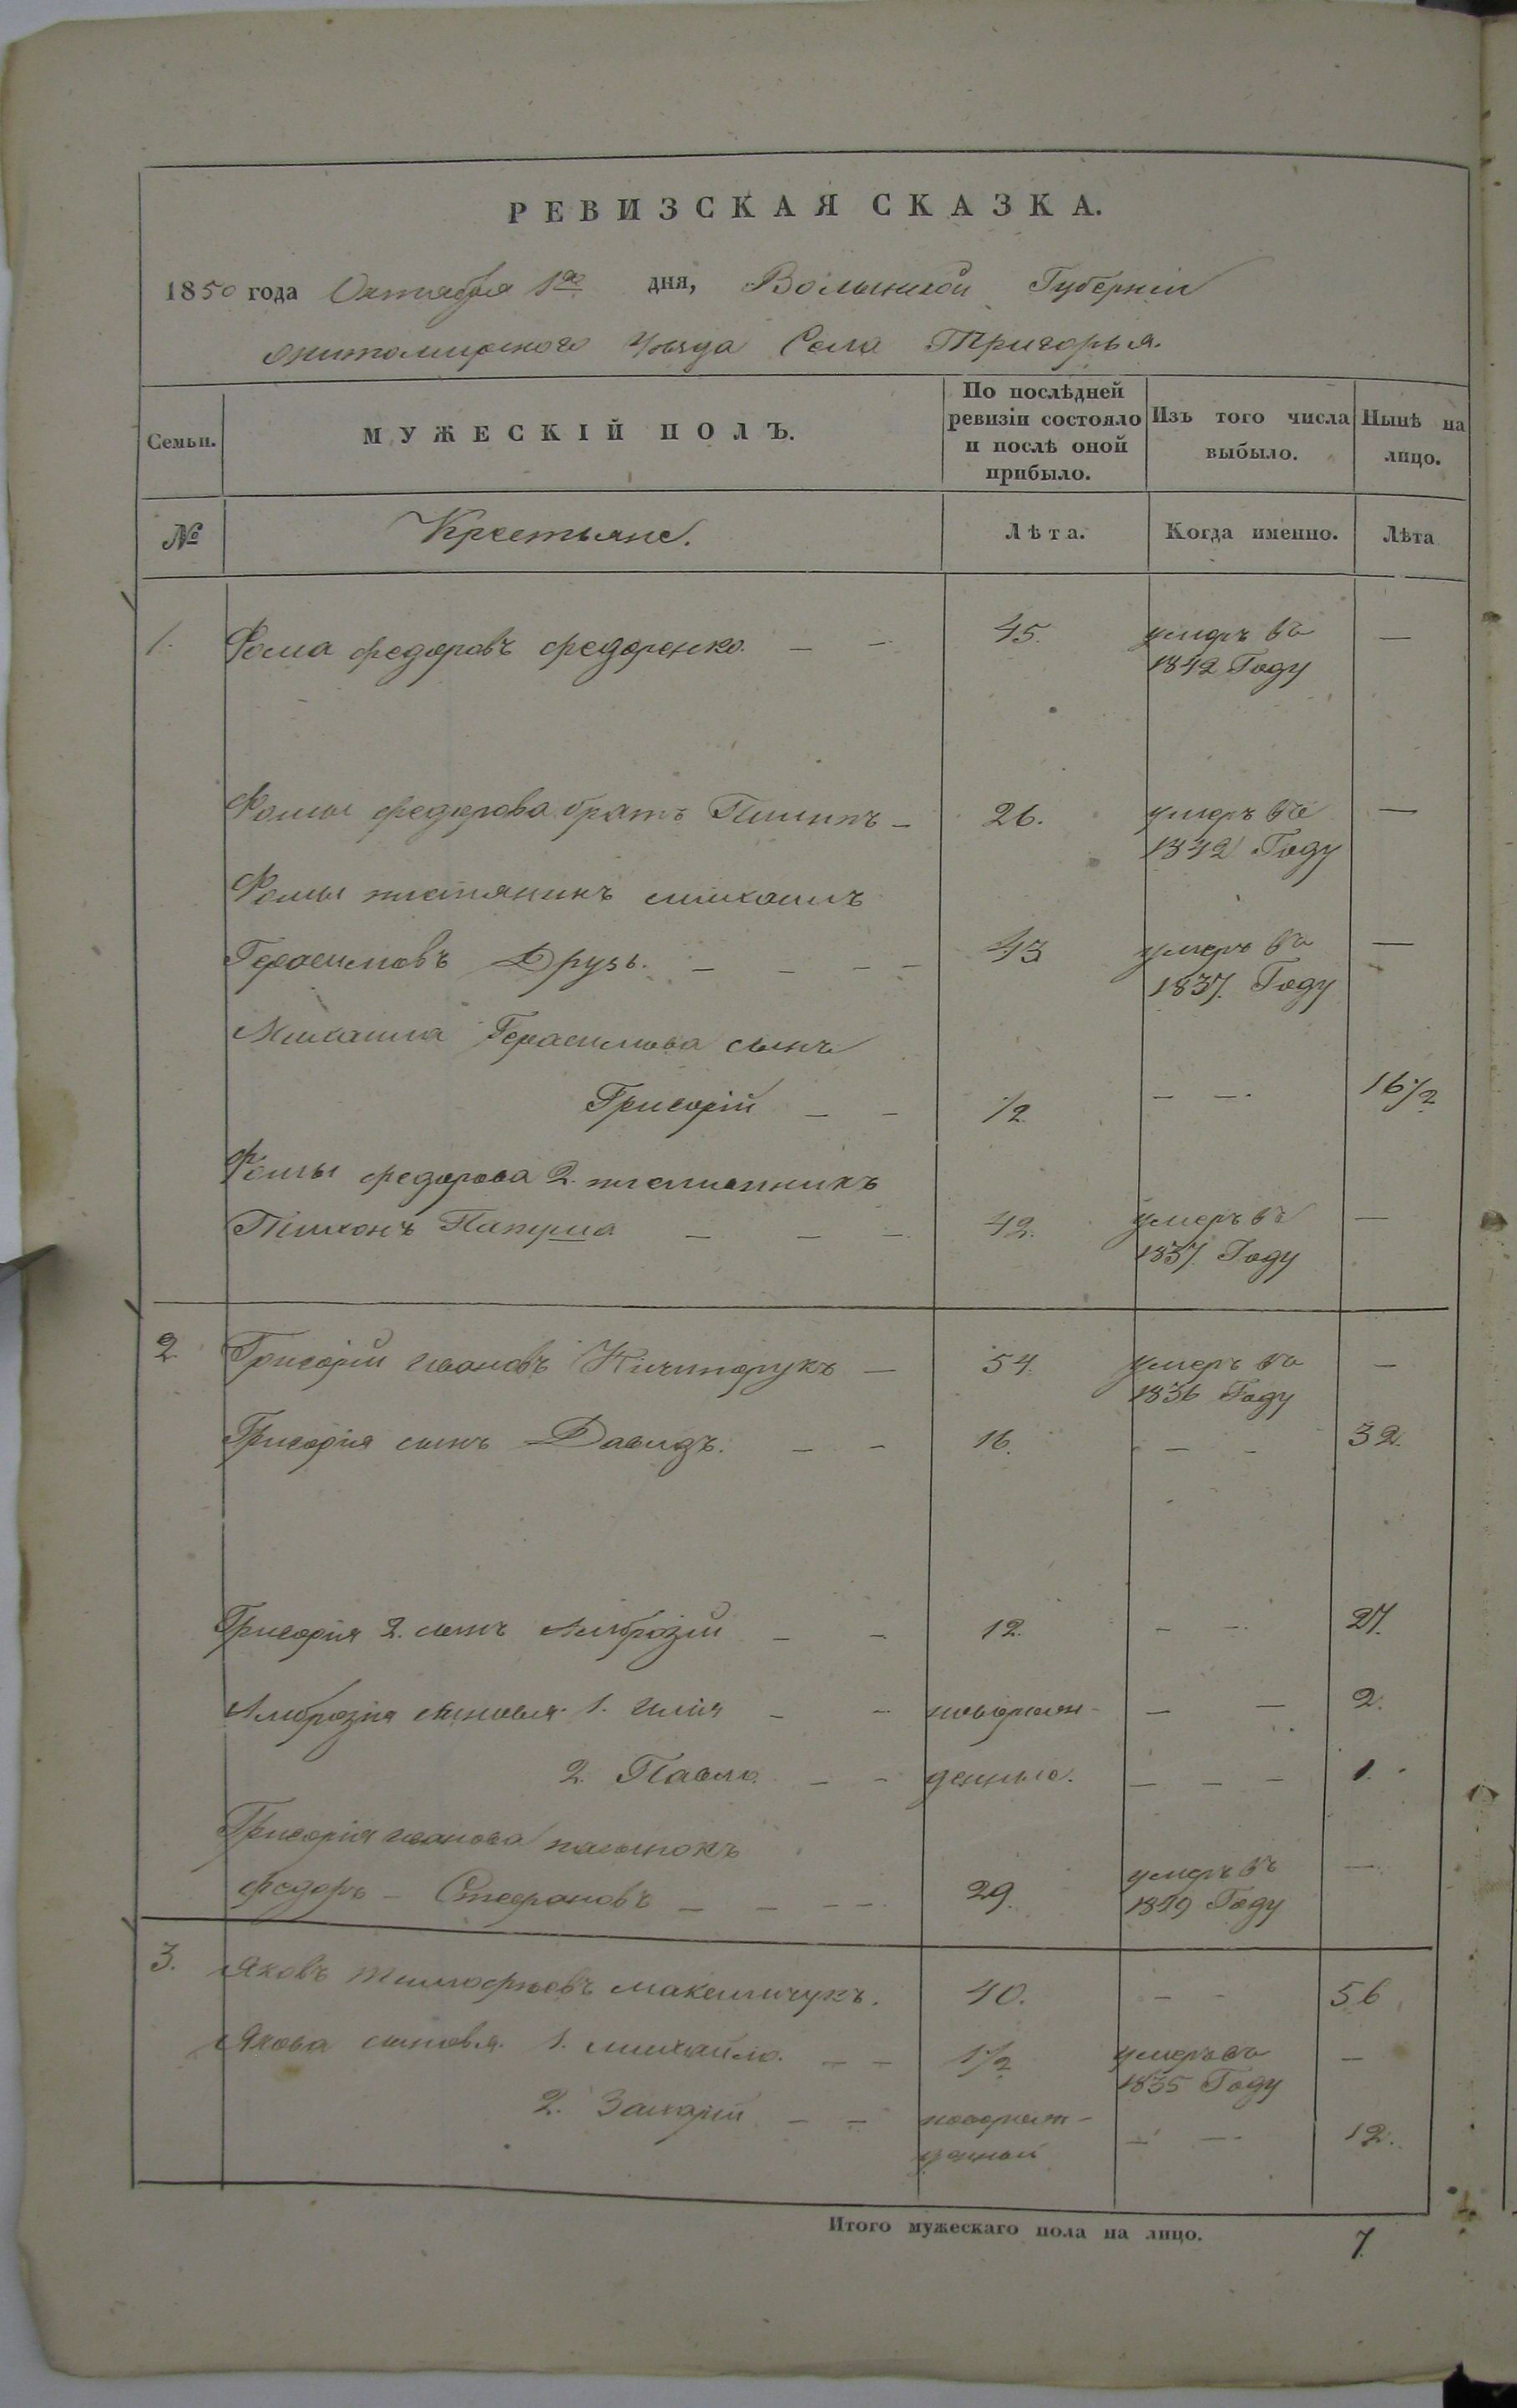 РЕВИЗСКАЯ СКАЗКА.
1850 года Октября 1го дня, Волынской Губерніи
Житомирского Уѣзда Села Тригорья.
Семьи. МУЖЕСКІЙ ПОЛЪ. По послѣдней ревизіи состояло и послѣ оной прибыло. Изъ того числа выбыло. Нынѣ на лицо.
№ Крестьяне. Лѣта. Когда именно. Лѣта
1. Фома Федоровъ Федоренко. — — 45. умеръ въ —
1842 Году
Фомы Федорова братъ — 26. умеръ въ —
1842 Году
Фомы племянникъ Михаилъ
Герасимовъ Друзь. — — — — 43 умеръ въ —
1837. Году
Михаила Герасимова сынъ
Григорій — — 1/2 — —. 16 1/2
Фомы Федорова 2. племянникъ
Тихонъ — — — 42. умеръ въ —
1837. Году
2 Григорій Ивановъ Ничипорукъ — 54. умеръ въ —
1836 Году
Григорія сынъ Давидъ. — — 16. — — 32.
Григорія 2. сынъ Амброзій — — 12. — —. 27.
Амброзія сыновья 1. Илія — — новорож- — — 2.
2. Павло — — денные. — — — 1.
Григорія Иванова пасынокъ
Федоръ — Стефановъ — — — — 29. умеръ въ —
1849 Году
3. Яковъ Тимофѣевъ Максимчукъ. 40. — — 56
Якова сыновья. 1. Михайло. — — 1 1/2 умеръ въ —
1835 Году
2. Захарій — — новорож-
денный — —. 12.
Итого мужескаго пола на лицо. 7.